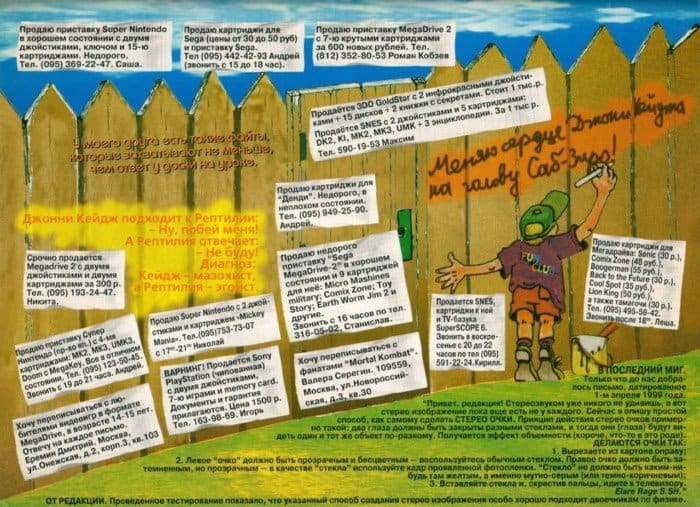 Продаю приставку Super Nintendo
в хорошем состоянии с двумя
джойстиками, ключом и 15-ю
картриджами. Недорого.
Тел. (095) 369-22-47. Саша.
Продаю картриджи для
Sega (цены от 30 до 50 руб)
и приставку Sega.
Тел (095) 442-42-93 Андрей
(звонить с 15 до 18 час).
Продаю приставку MegaDrive 2
с 7-ю крутыми картриджами
за 600 новых рублей. Тел.
(812) 352-80-53 Роман Кобзев
Продаётся 3DO GoldStar с 2 инфрокрасными джойсти-
ками + 15 дисков + 2 книжки с секретами. Стоит 1 тыс.р.
Продаётся SNES с 2 джойстиками и 5 картриджами:
DK2, KI, MK2, MK3, UMK + 3 энциклопедии. За 1 тыс р.
Тел. 590-19-53 Максим
У моего друга есть такие файты,
которые захватывают не меньше,
чем ответ у доски на уроке.
Меняю сердце Джони Кейджа
на голову Саб-Зиро!
Джонни Кейдж подходит к Рептилии:
– Ну, побей меня!
А Рептилия отвечает:
– Не буду!
Диагноз:
Кейдж – мазохист,
а Рептилия – эгоист.
Продаю картриджи для
"Денди". Недорого, в
неплохом состоянии.
Тел. (095) 949-25-90.
Андрей.
Срочно продается
Megadrive 2 с двумя
джойстиками и двумя
картриджами за 300 р.
Тел. (095) 193-24-47.
Никита.
Продаю недорого
приставку "Sega
MegaDrive-2" в хорошем
состоянии и 9 картриджей
для неё: Micro Mashines
military; Comix Zone; Toy
Story; Earth Worm Jim 2 и
другие.
Звонить с 16 часов по тел.
316-05-02, Станислав.
FUN
CLUB
Продаю картриджи для
Мегадрайва: Sonic (30 р.),
Comix Zone (48 руб.),
Boogerman (55 руб.),
Back to the Future (30 р.),
Cool Spot (35 руб.),
Lion King (50 руб.),
а также тамагочи (30 р.).
Тел. (095) 495-58-42.
Звонить после 18ºº. Леша.
Продается SNES,
картриджи к ней
и TV-базука
SuperSCOPE 6.
Звонить в воскре-
сенье с 20 до 22
часов по тел (095)
591-22-24. Кирилл.
Продаю приставку Супер
Нинтендо (пр-во яп.) с 4-мя
картриджами: MK2, MK3, UMK3,
Doom с MegaKey. Все в отличном
состоянии. Тел. (095) 123-50-45.
Звонить с 19 до 21 часа. Андрей.
Продаю Super Nintendo с 2 джой-
стиками и картриджем «Mickey
Mania». Тел.(095)753-73-07
с 17ºº-21ºº Николай
ВАРНИНГ! Продается Sony
PlayStation (чипованная)
с двумя джойстиками,
7-ю играми и memory card.
Документы и гарантия
прилагаются. Цена 1500 р.
Тел. 163-98-69. Игорь
Хочу переписываться с
фанатами "Mortal Kombat".
Валера Серегин. 109559,
Москва, ул.Новороссий-
ская, д.3, кв.30
Хочу переписываться с лю-
бителями видеоигр в формате
MegaDrive, в возрасте 14-15 лет.
Отвечу на каждое письмо.
Еремин Дмитрий. Москва,
ул.Онежская, д.2, корп.3, кв.103
В ПОСЛЕДНИЙ МИГ.
Только что до нас добра-
лось письмо, датированное
1-м апреля 1999 года.
"Привет, редакция! Стереозвуком уже никого не удивишь, а вот
стерео изображение пока еще есть не у каждого. Сейчас я опишу простой
способ, как самому сделать СТЕРЕО ОЧКИ. Принцип действия стерео очков пример-
но такой: два глаза должны быть закрыты разными стеклами, и тогда они (глаза) будут ви-
деть один и тот же объект по-разному. Получается эффект объемности (короче, что-то в это роде).
ДЕЛАЮТСЯ ОЧКИ ТАК:
1. Вырезаете из картона оправу;
2. Левое "очко" должно быть прозрачным и бесцветным – воспользуйтесь обычным стеклом. Правое очко должно быть за-
темненным, но прозрачным – в качестве "стекла" используйте кадр проявленной фотопленки. "Стекло" не должно быть каким-ни-
будь там желтым, а именно мутно-серым (или темно-коричневым);
3. Вставляйте стекла и, скрестив пальцы, идите к телевизору.
Elare Rage S.SH."
ОТ РЕДАКЦИИ. Проведённое тестирование показало, что указанный способ создания стерео изображения особо хорошо подходит двоечникам по физике.